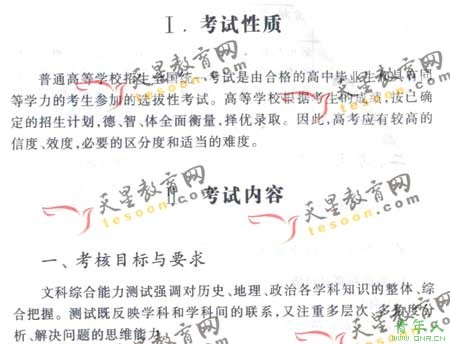 Ⅰ. 考试性质
普通高等学校招生全国统一考试是由合格的高中毕业生和具有同
等学力的考生参加的选拔性考试。高等学校根据考生的成绩,按已确
定的招生计划,德、智、体全面衡量,择优录取。因此,高考应有较高的
信度、效度,必要的区分度和适当的难度。
Ⅱ 考试内容
一、考核目标与要求
文科综合能力测试强调对历史、地理、政治各学科知识的整体、综
合把握。测试既反映学科和学科间的联系,又注重多层次、多角度分
析、解决问题的思维能力
天星教育网
tesoon.com
天星教育网
tesoon.com
天星教育网
tesoon.com
天星教育网
tesoon.com
青年人
www.QNR.CN